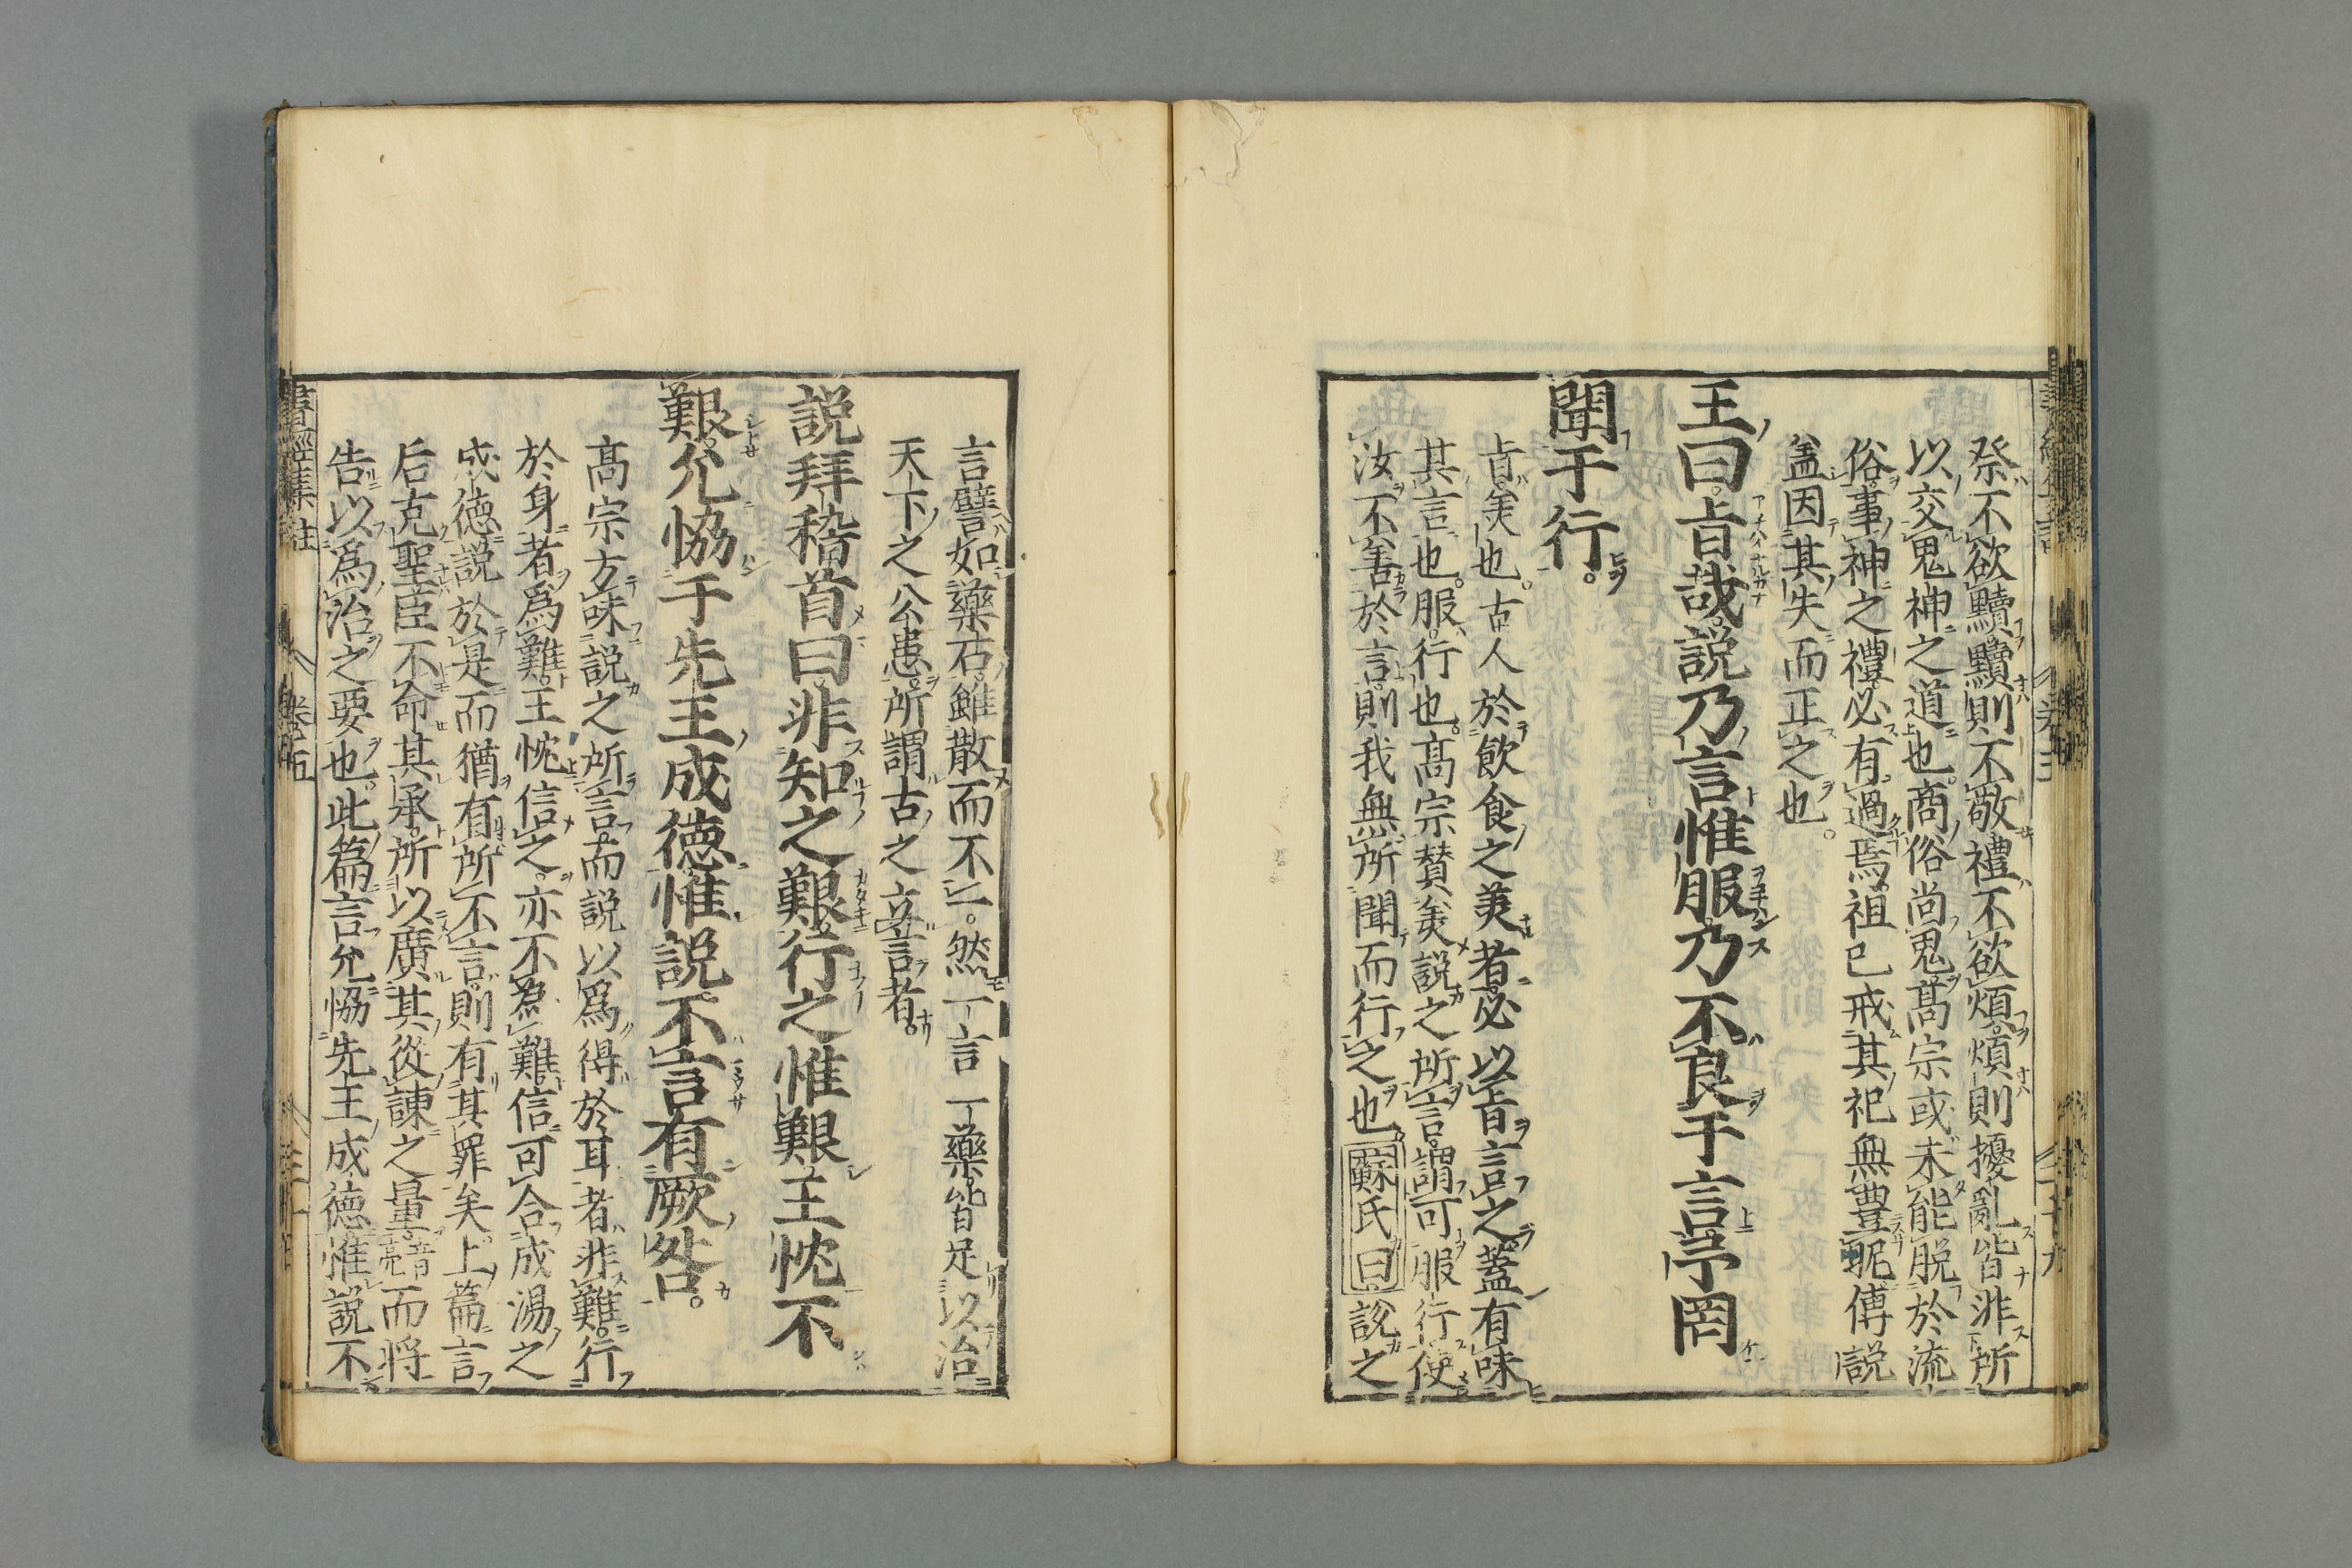 祭不欲黷黷則不敬禮不欲煩煩則擾亂皆非所
以交鬼神之道也商俗尚鬼髙宗或未能脱於流
俗事神之禮必有過焉祖已戒其祀無豊昵傅説
盖因其失而正之也。
王曰㫖哉説乃言惟服乃不良于言予罔
聞于行。
㫖羙也。古人於飲食之羙者必以㫖言之蓋有味
其言也。服行也。髙宗賛羙説之所言謂可服行使
汝不善於言則我無所聞而行之也蘇氏曰説之
言譬如藥石雖散而不一。然一言一藥皆足以治
天下之公患所謂古之立言者。
説拜稽首曰非知之艱行之惟艱王忱不
艱允恊于先王成德惟説不言有厥咎。
髙宗方味説之所言而説以爲得於耳者非難行
於身者爲難王忱信之亦不爲難信可合成湯之
成德説於是而猶有所不言則有其罪矣上篇言
后克聖臣不命其承所以廣其從諫之量而將
告以爲治之要也。此篇言允恊先王成德惟説不
書經集註
卷五